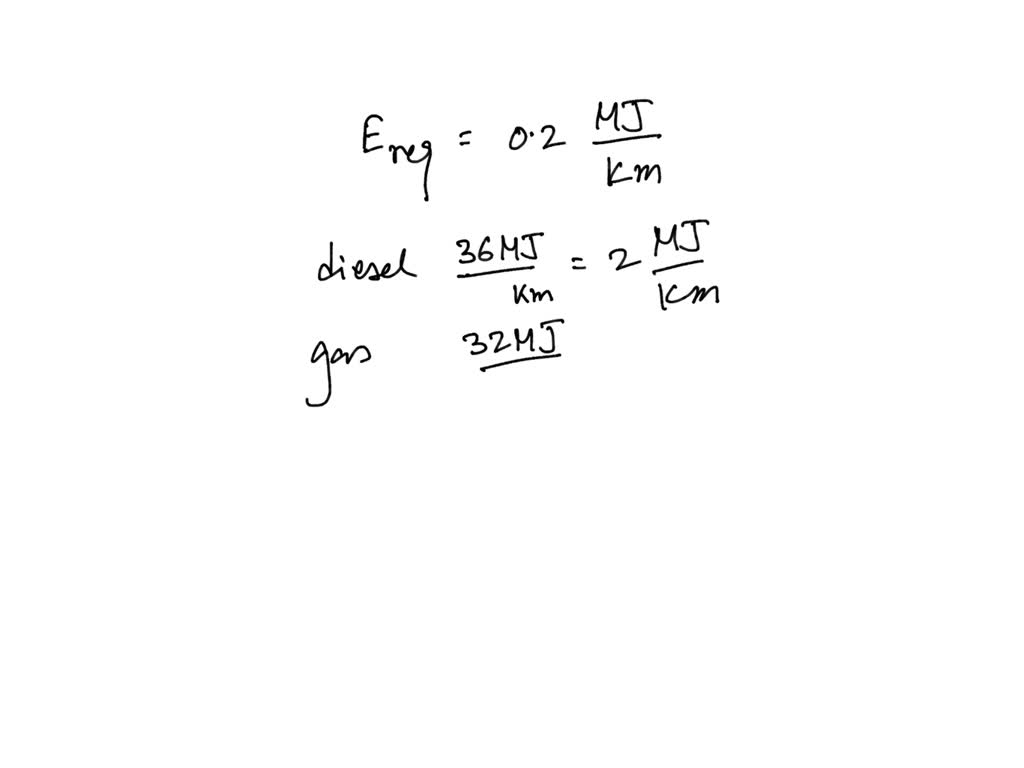 Ereq = 0.2 MJ/Km
diesel 36MJ/Km = 2 MJ/Km
gas 32MJ